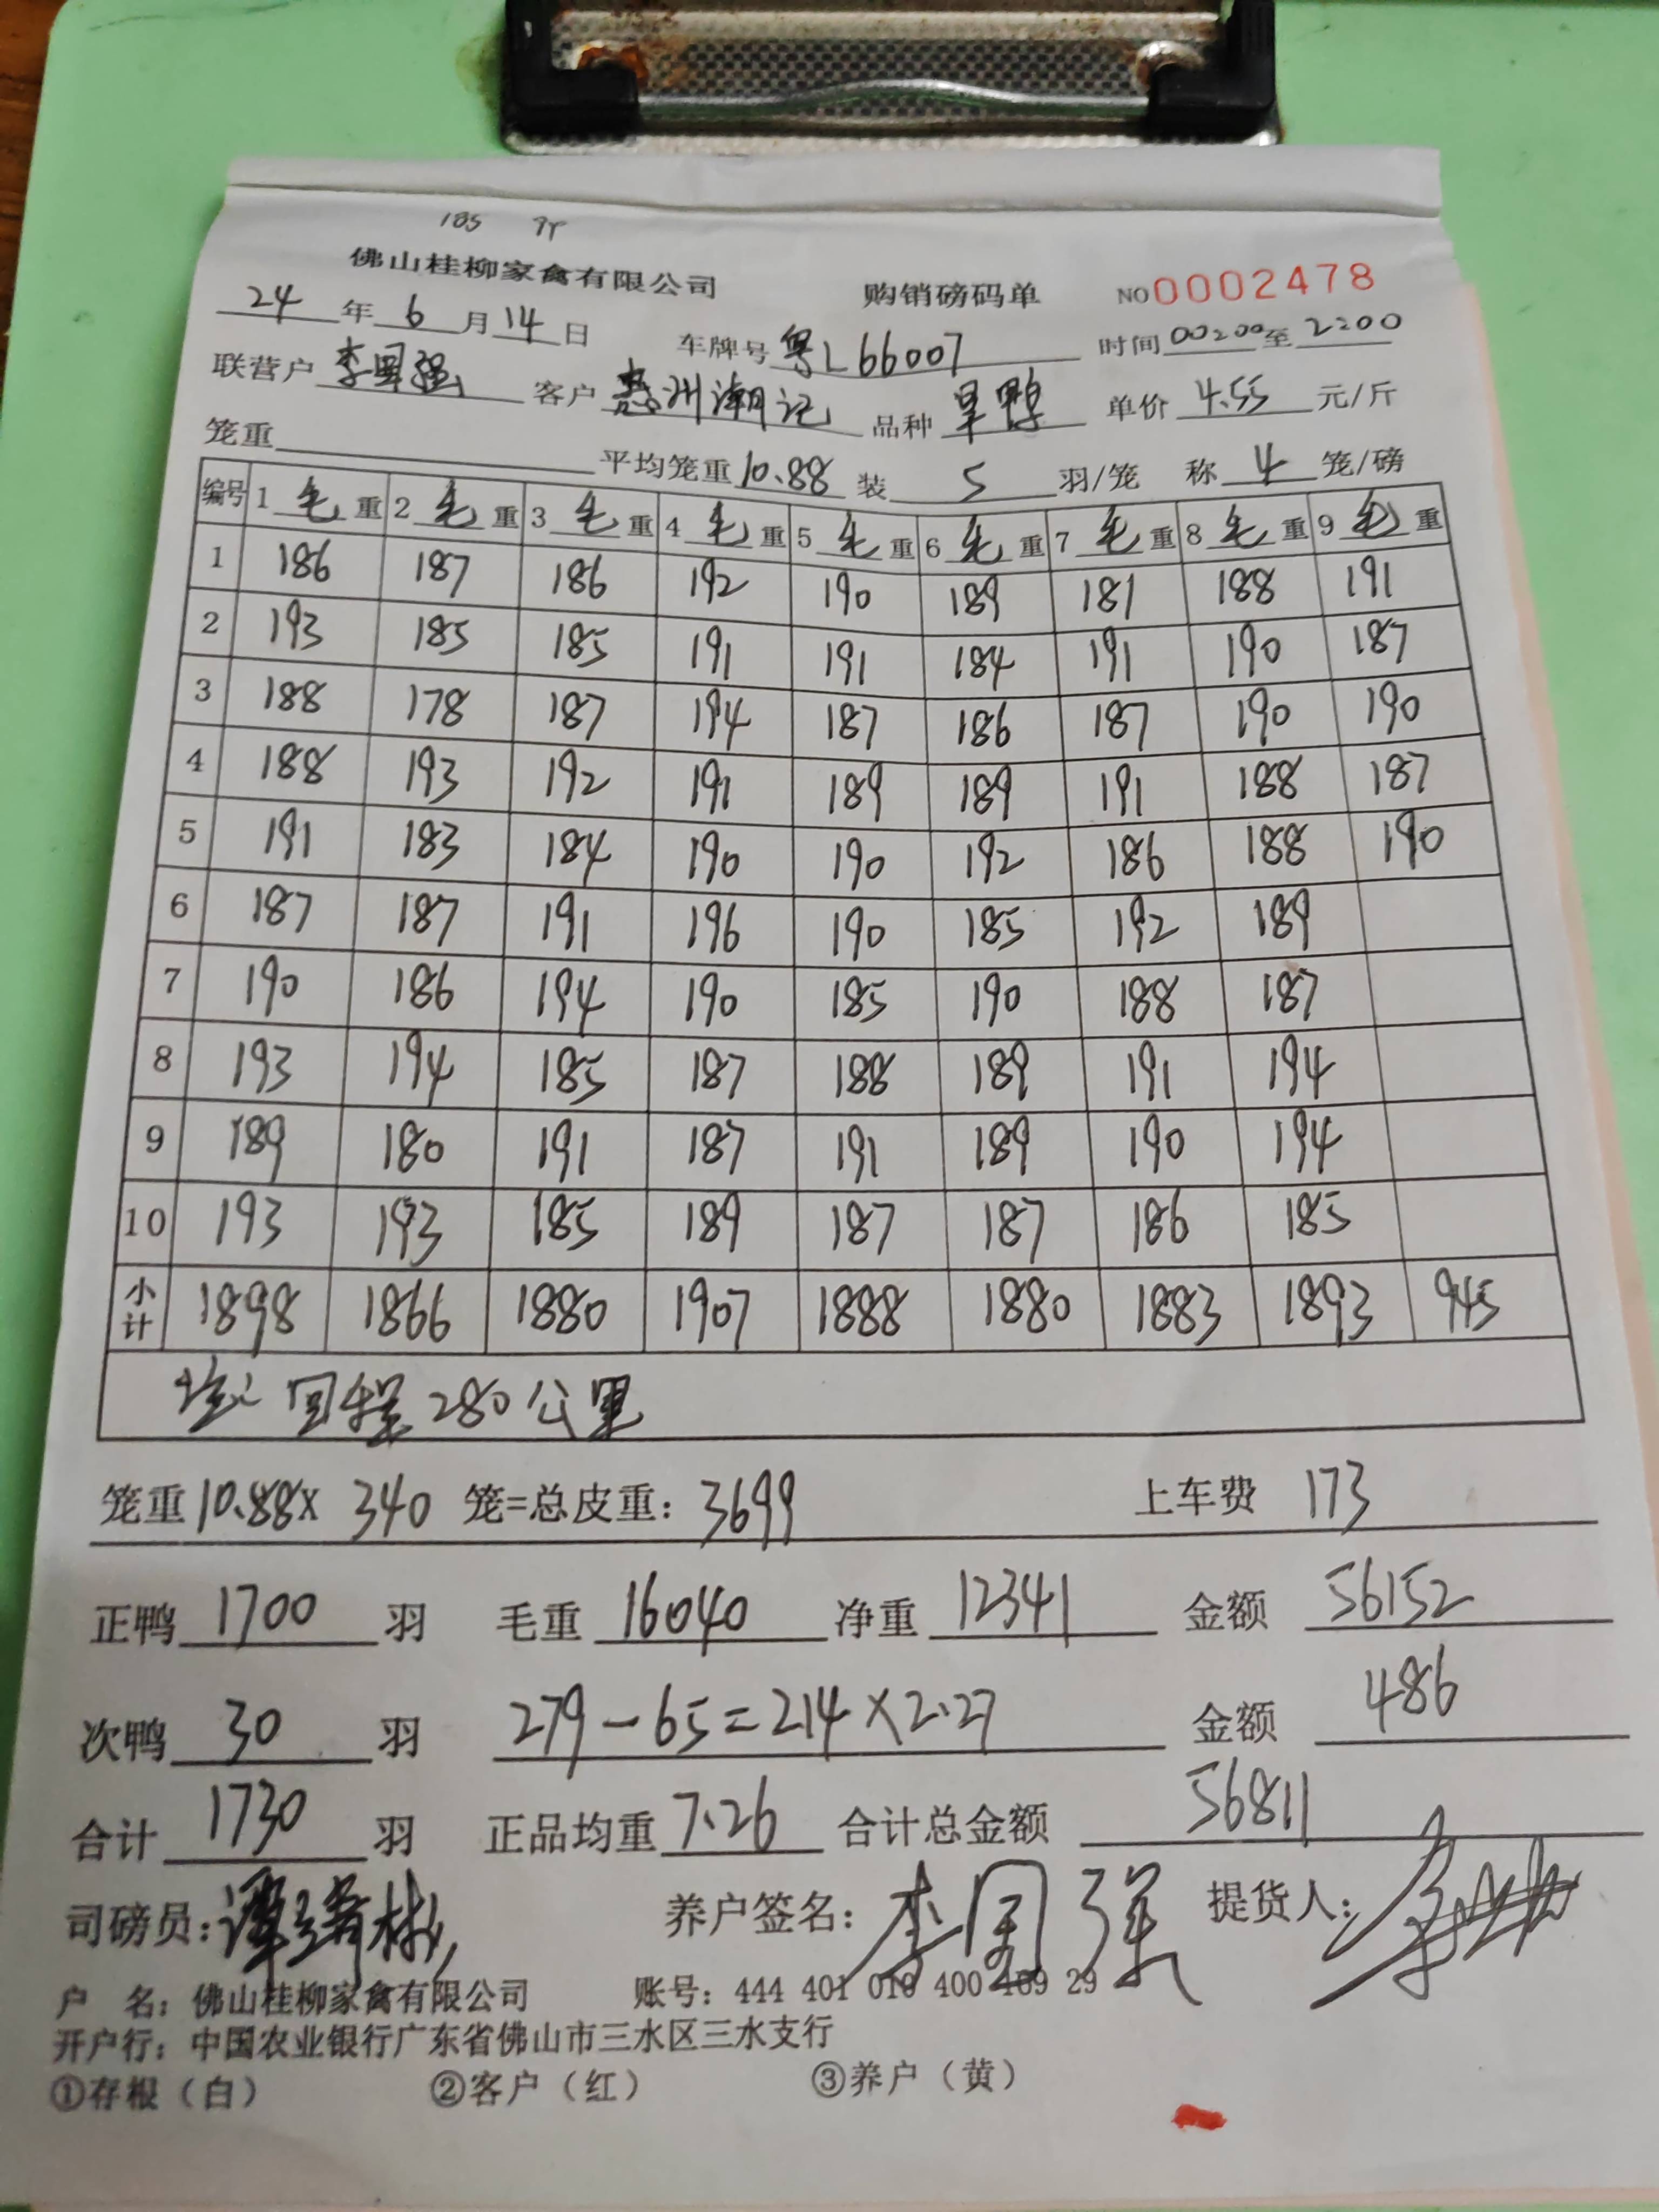 185
佛山桂柳家禽有限公司 购销磅码单 NO 0002478
24 年 6 月 14 日 车牌号 粤L66007 时间 00200 至 2200
联营户 李国强 客户 惠洲潮记 品种 旱鸭 单价 4.55 元/斤
笼重 平均笼重 10.88 装 5 羽/笼 称 4 笼/磅
编号 1 毛 重 2 毛 重 3 毛 重 4 毛 重 5 毛 重 6 毛 重 7 毛 重 8 毛 重 9 毛 重
1 186 187 186 192 190 189 181 188 191
2 193 185 185 191 191 184 191 190 187
3 188 178 187 194 187 186 187 190 190
4 188 193 192 191 189 189 191 188 187
5 191 183 184 190 190 192 186 188 190
6 187 187 191 196 190 185 192 189
7 190 186 194 190 185 190 188 187
8 193 194 185 187 188 189 191 194
9 189 180 191 187 191 189 190 194
10 193 193 185 189 187 187 186 185
小计 1898 1866 1880 1907 1888 1880 1883 1893 945
回程 280 公里
笼重 10.88 x 340 笼=总皮重: 3699 上车费 173
正鸭 1700 羽 毛重 16040 净重 12341 金额 56152
次鸭 30 羽 279-65=214×2.27 金额 486
合计 1730 羽 正品均重 7.26 合计总金额 56811
司磅员: 养户签名: 李国强 提货人:
户 名: 佛山桂柳家禽有限公司 账号: 444 401 010 400 469 29
开户行: 中国农业银行广东省佛山市三水区三水支行
①存根(白) ②客户(红) ③养户(黄)